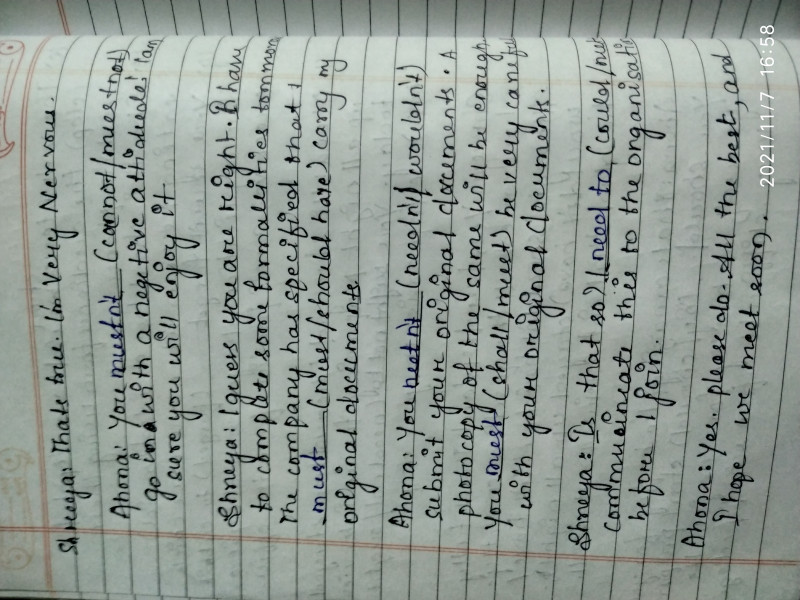 Shreeya: Thats true. I'm Very Nervous.
Ahona: You mustn't (cannot/mustnot)
go in with a negitive attidude! I am
sure you will enjoy it
Shreya: I guess you are right. I have
to complete some formalities tommorow
The company has specified that I
must (must/should have) carry my
original documents
Ahona: You neetn't (needn't/ wouldn't)
submit your original documents. A
photocopy of the same will be enough.
You must (shall/must) be very careful
with your original documents.
Shreya: Is that so? I need to (could/
communicate this to the organisatio
before I join.
Ahona: Yes. please do. All the best, and
I hope we meet soon.
2021/11/7 16:58